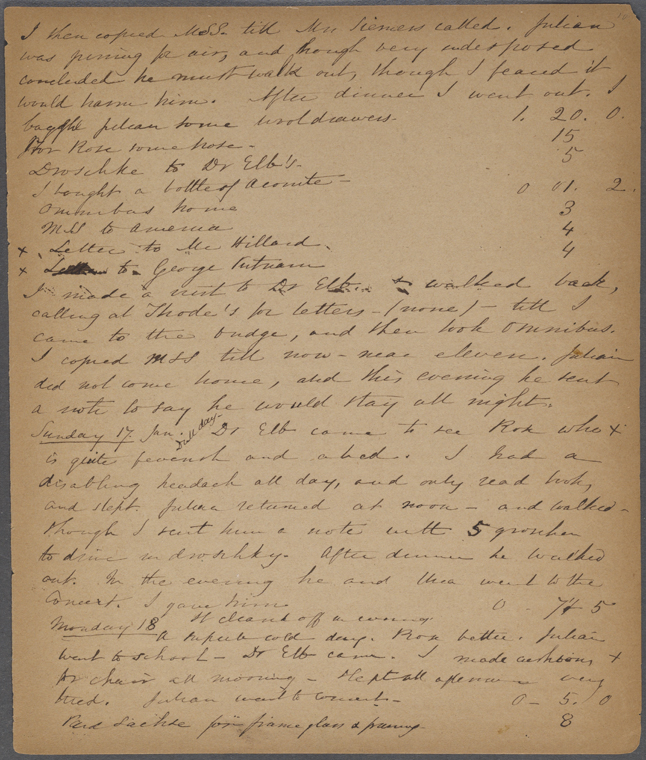 I then copied MSS. till Mrs Siemens called. Julian
was pining for air, and though very indisposed
concluded he must walk out, though I feared it
would harm him. After dinner I went out. I
bought Julian some wool drawers — 1. 20. 0.
For Rose some hose — 15
Droschke to Dr Elb's — 5
I bought a bottle of Aconite — 0 01. 2.
Omnibus home 3
MSS to America 4
x Letter to Mr Hillard. 4
x to George Putnam
I made a visit to Dr Elb & walked back,
calling at Thode's for letters — (none) — till I
came to the bridge, and then took Omnibus.
I copied MSS till now — near eleven. Julian
did not come home, and this evening he sent
a note to say he would stay all night.
Sunday 17 Jan. Dull day. Dr Elb came to see Rose who x
is quite feverish and abed. I had a
disabling headach all day, and only read books,
and slept. Julian returned at noon — and walked —
though I sent him a note with 5 groschen
to drive in droschky. After dinner he walked
out. In the evening he and Una went to the
Concert. I gave him 0 - 7½ 5
Monday 18 It cleared off in evening
A superb cold day. Rose better. Julian
went to school — Dr Elb came. I made cushions x
for chair all morning — Slept all afternoon very
tired. Julian went to Concert — 0 — 5. 0
Paid Sachse for frame glass & framing 8